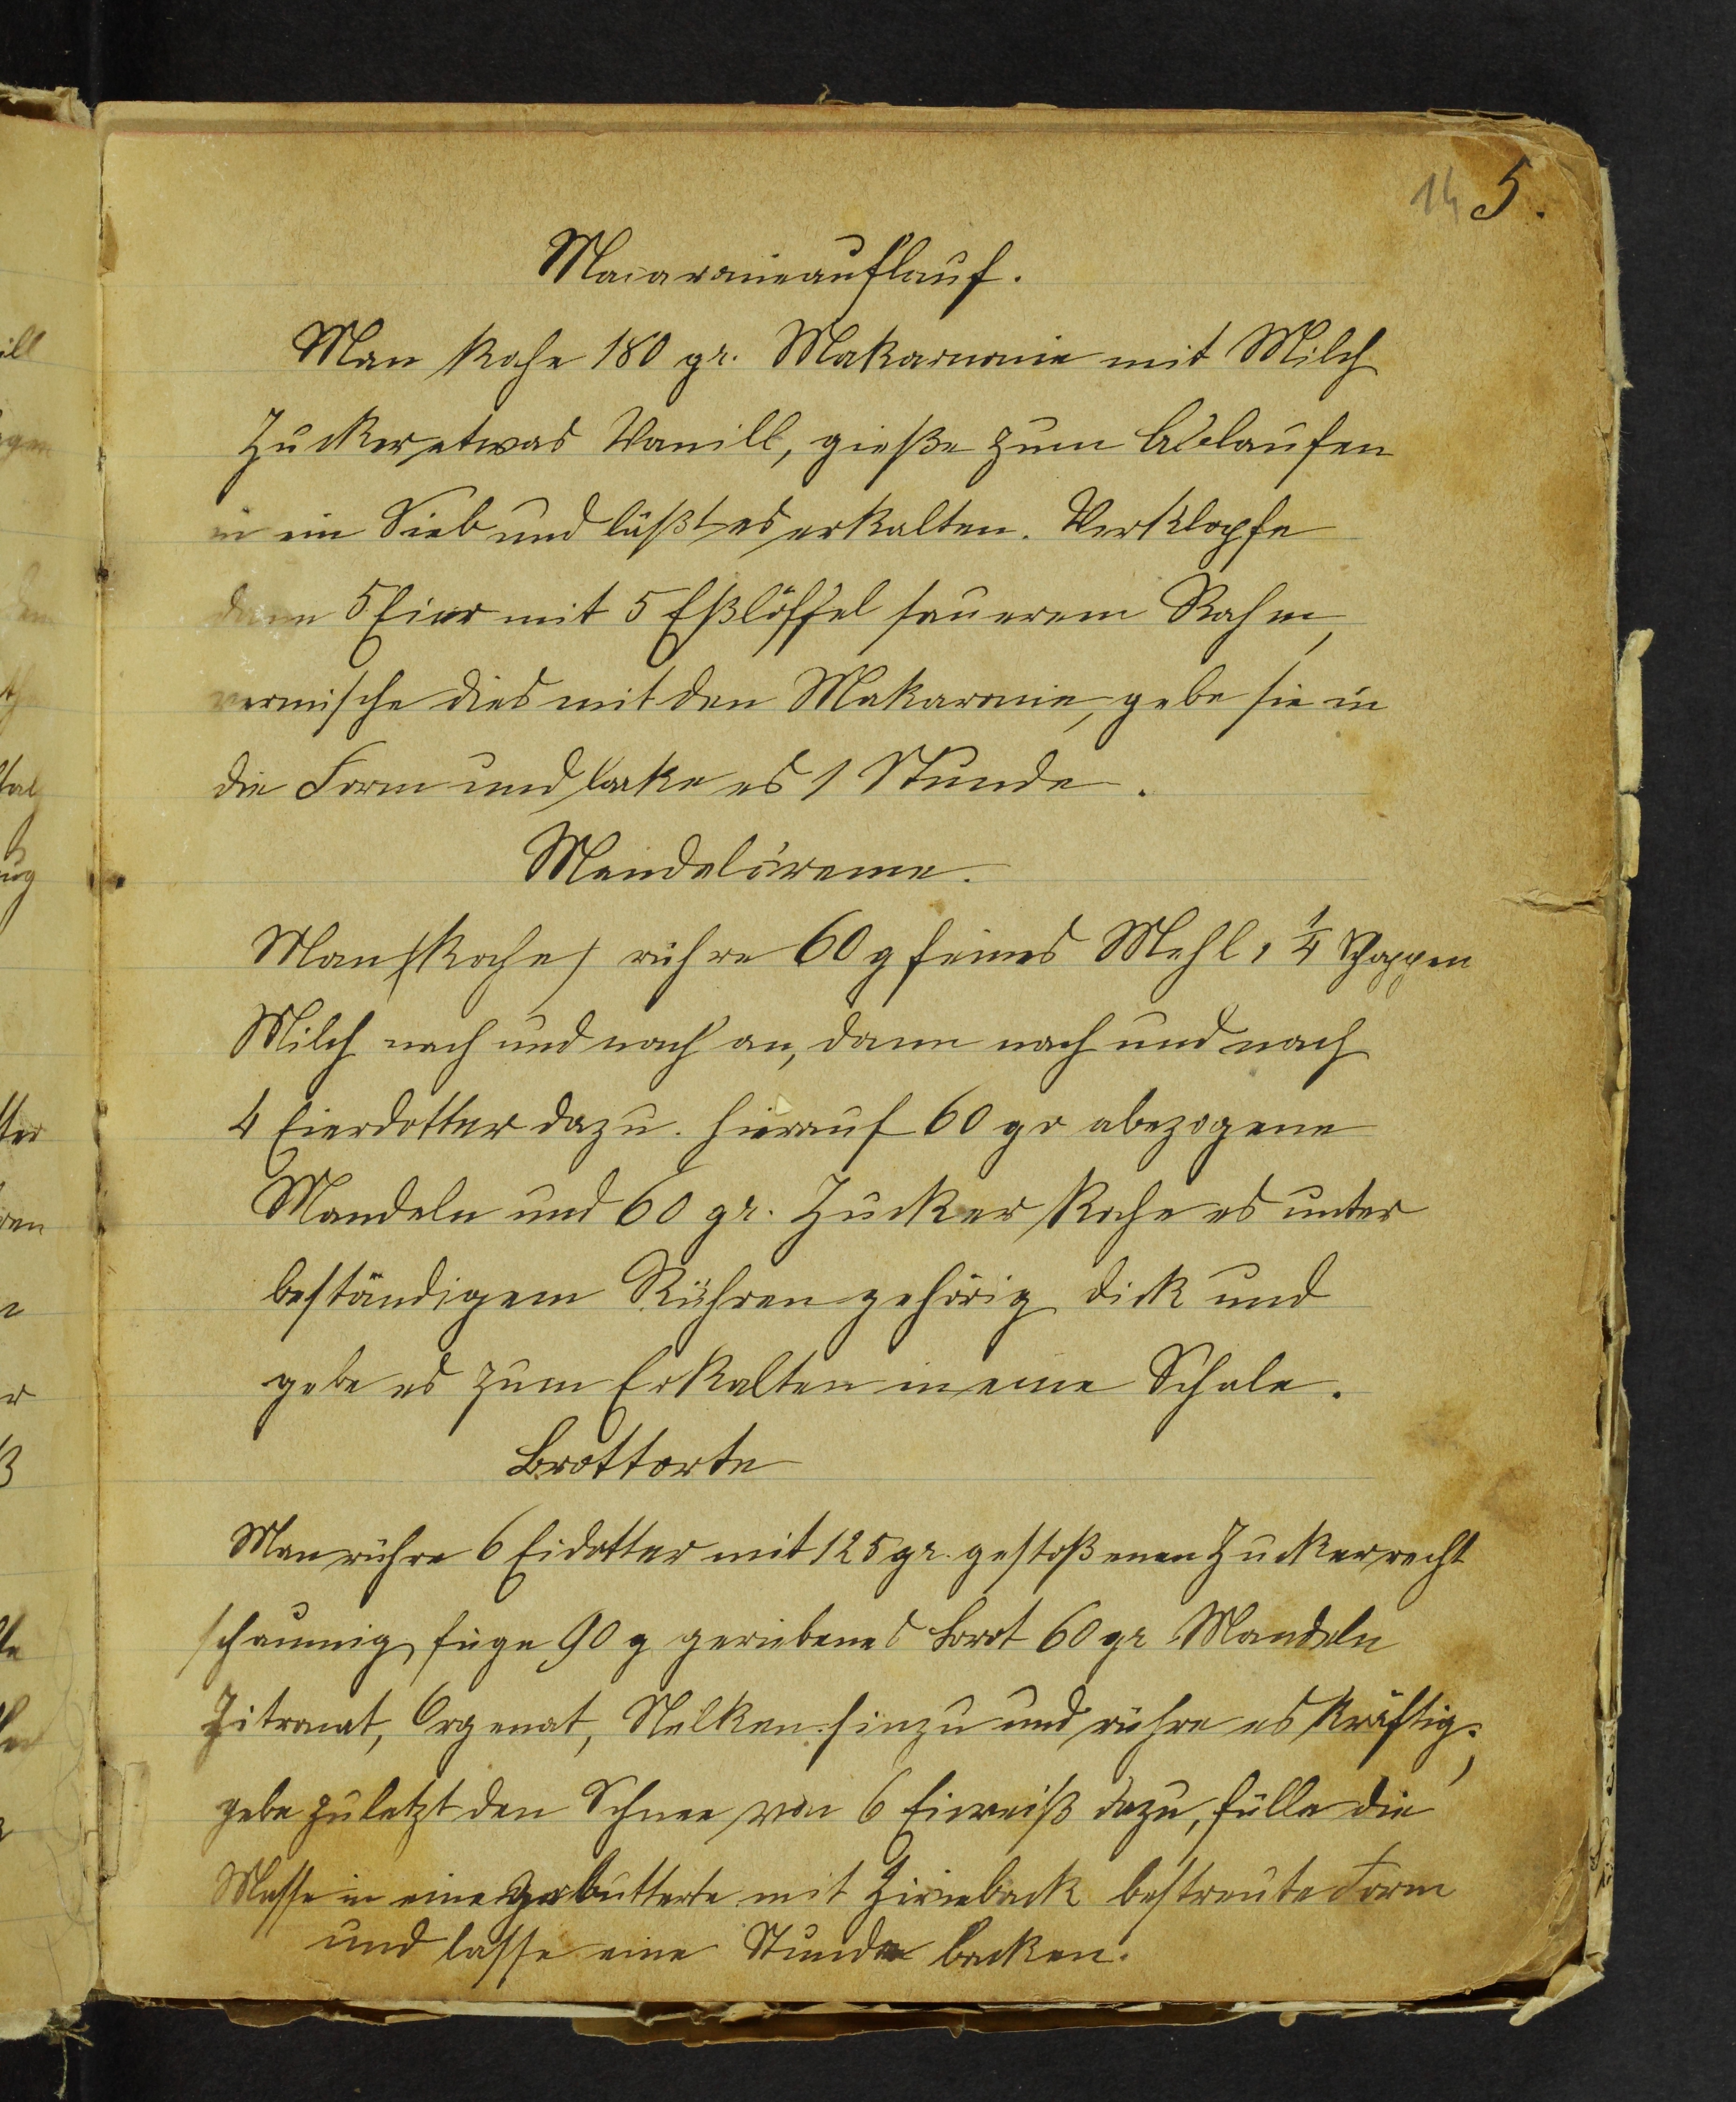 14 5.
Macaronieauflauf.
Man koche 180 gr. Makaronie mit Milch
Zucker etwas Vanill, gieße zum Ablaufen
in ein Sieb und läßt es erkalten. Verklopfe
dann 5 Eier mit 5 Eßlöffel sauerem Rahm,
vermische dies mit den Makaronie, gebe sie in
die Form und backe es 1 Stunde.
Mandelcreme.
Man (koche) rühre 60 g feines Mehl, 1/4 Schoppen
Milch nach und nach an, dann nach und nach
4 Eierdotter dazu. hierauf 60 gr abezogene
Mandeln und 60 gr. Zucker koche es unter
beständigem Rühren gehörig dick und
gebe es zum Erkalten in eine Schale.
Brottorte
Man rühre 6 Eidotter mit 125 gr. gestoßenen Zucker recht
schaumig, füge 90 g geriebenes Brot 60 gr Mandeln
Zitronat, Orgenat, Nelken hinzu und rühre es kräftig;
gebe zuletzt den Schnee von 6 Eiweiß dazu, fülle die
Masse in eine gebutterte mit Zwieback bestreute Form
und lasse eine Stunde backen.